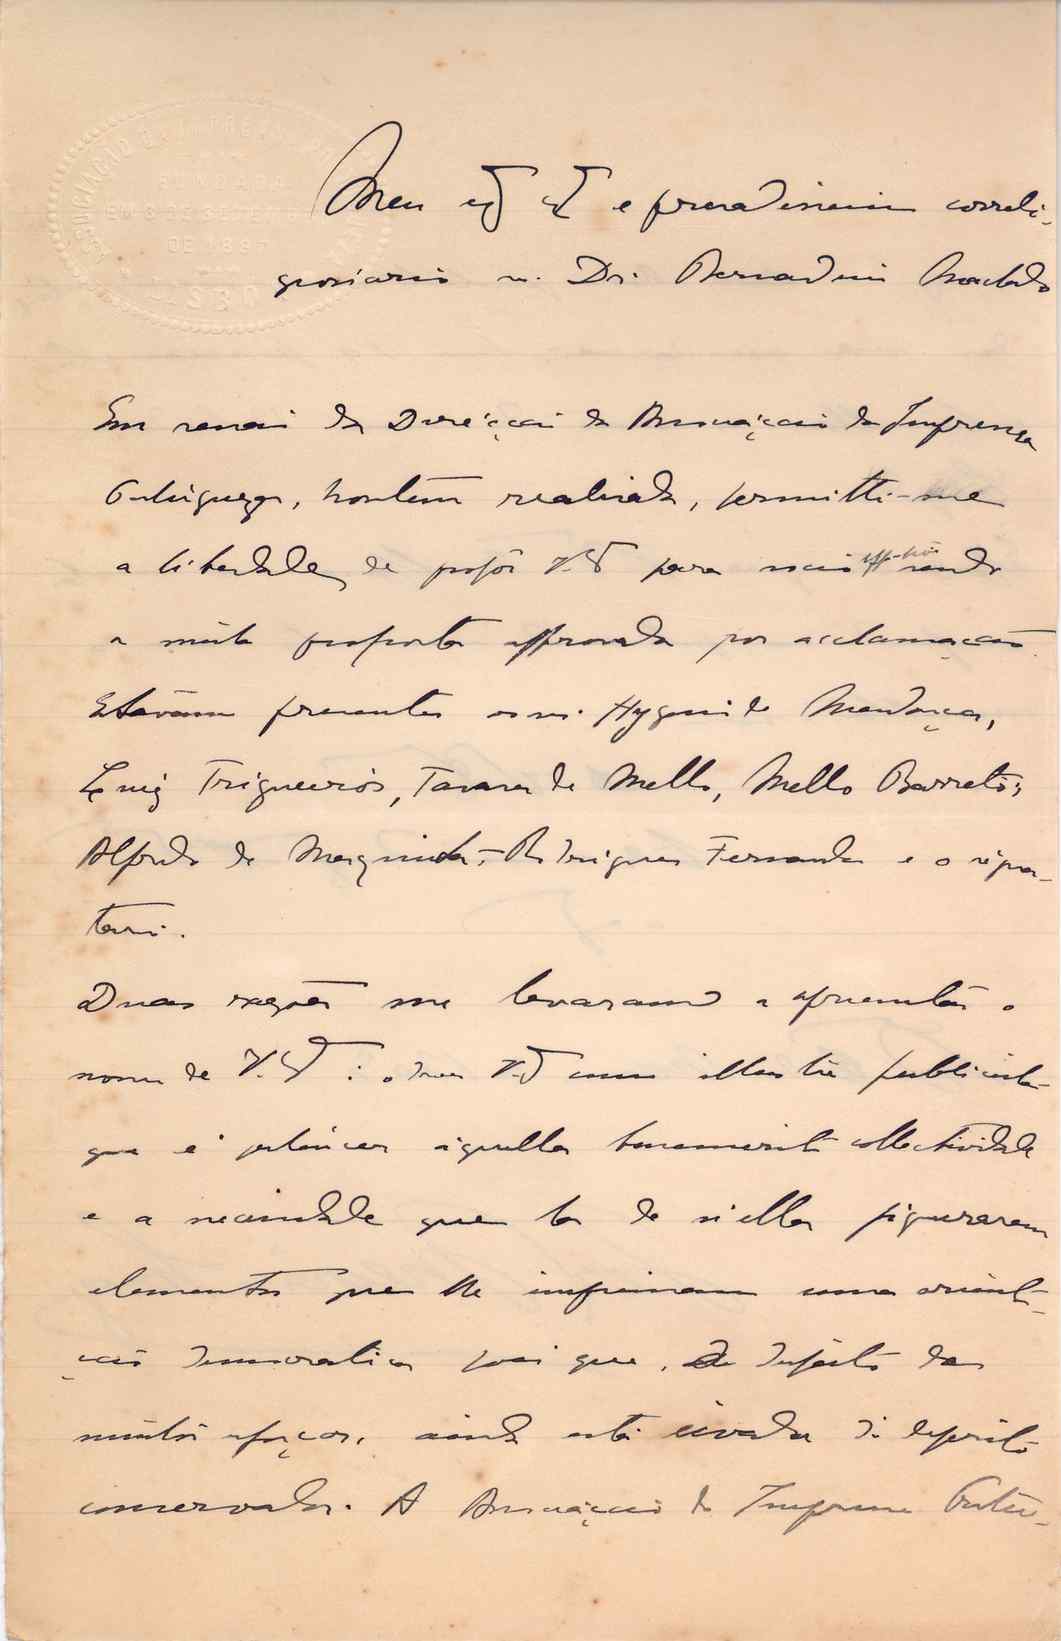 ASSOCIAÇÃO DA IMPRENSA
FUNDADA
EM 3 DE
DE 1897
Meu e prezadissimo correli-
gionario sr. Dr. Bernardino Machado
Em reunião da Direcção da Associação da Imprensa
Portugueza, hontem realisada, permitti-me
a liberdade de propôr V. Ex.ª para socio sendo
a minha proposta approvada por acclamação.
Estavam presentes os srs. Hygino de Mendonça,
Luiz Trigueiros, Tavares de Mello, Mello Barreto,
Alfredo de Mesquita, Rodrigues Fernandes e o signa-
tario.
Duas razões me levaram a apresentar o
nome de V. Ex.ª: o ser V. Ex.ª um illustre publicista
que é pertencer áquella benemerita collectividade
e a necessidade que ha de n'ella figurarem
elementos que lhe imprimam uma orienta-
ção democratica pois que, a despeito dos
muitos esforços, ainda está eivada de espirito
conservador. A Associação da Imprensa Portu-